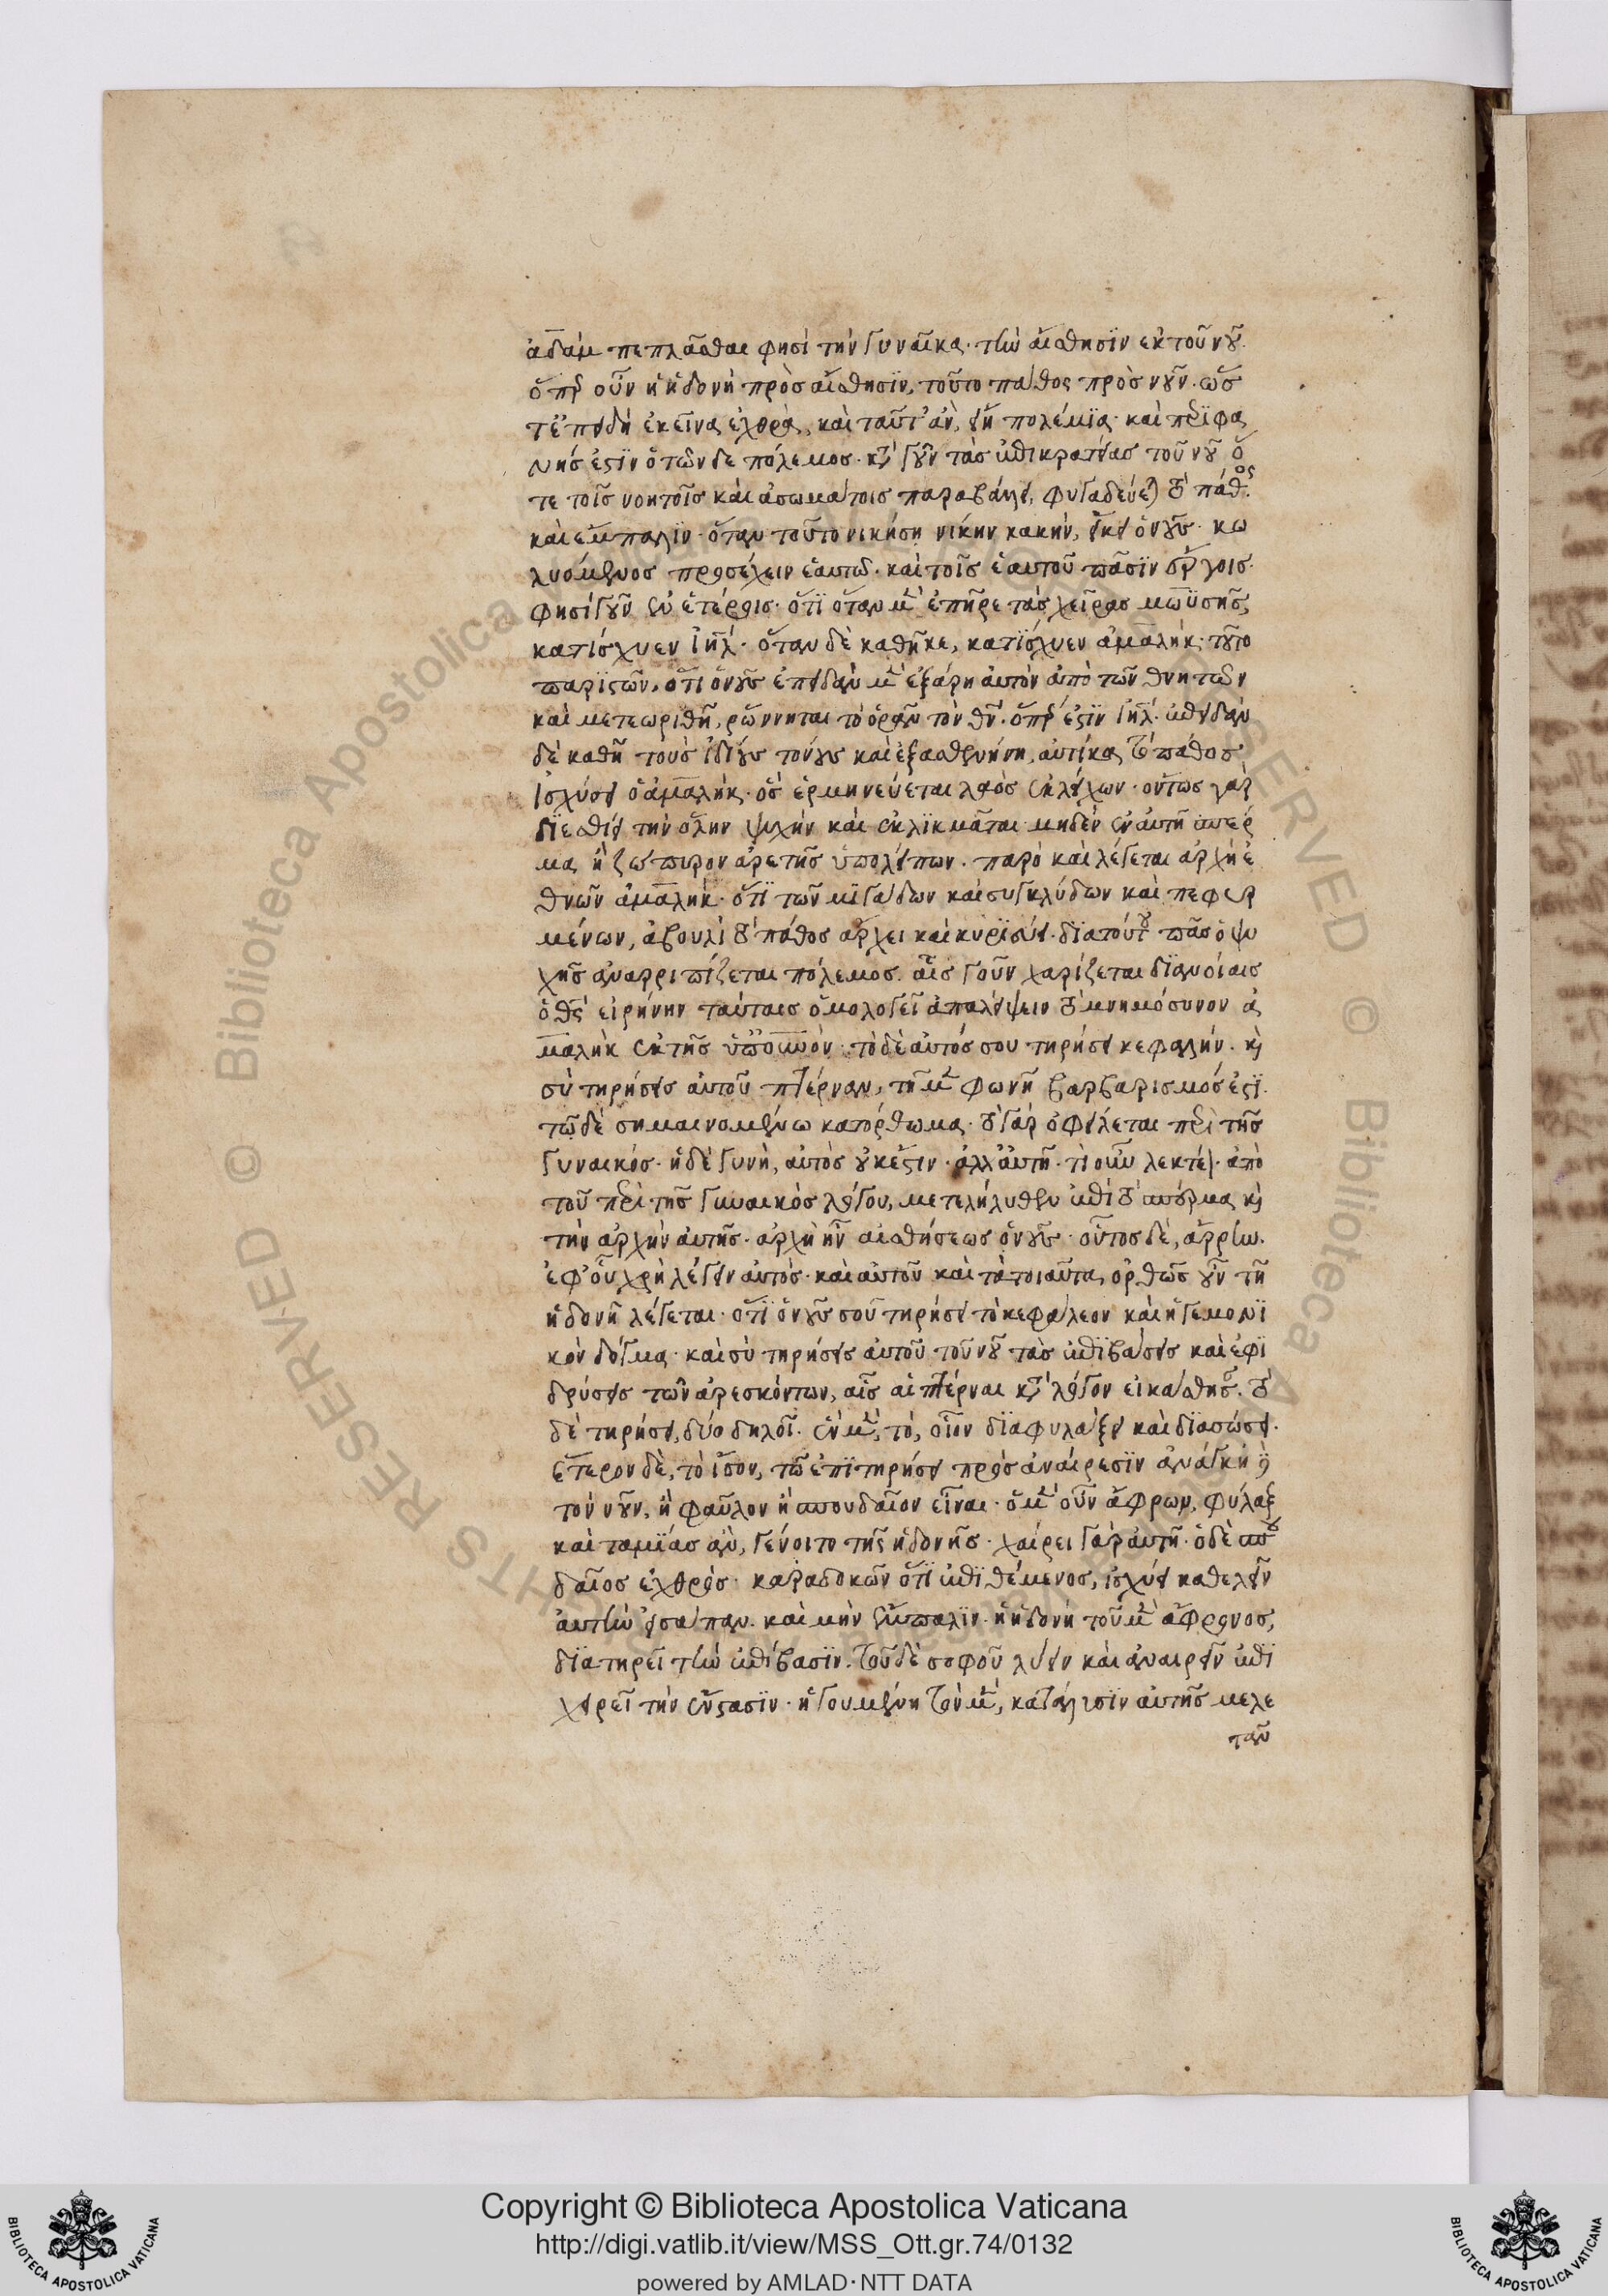 ἀδὰμ πεπλᾶσθαι φησὶ τὴν γυναῖκα· τὴν αἴσθησϊν ἐκ τοῦ νοῦ.
ὅπερ οὖν ἡ ἡδονὴ πρὸς αἴσθησϊν, τοῦτο πάθος πρὸς νοῦν. ὥσ
τ' ἐπειδὴ ἐκεῖνα ἐχθρὰ, καὶ ταῦτ' ἂν, εἴη πολέμϊα· καὶ περϊφα
νής ἐστϊν ὁ τῶνδε πόλεμος· κατὰ γοῦν τὰς ἐπικρατείας τοῦ νοῦ ὅ
τε τοῖς νοητοῖς καὶ ἀσωμάτοις παραβάλλει, φυγαδεύεται τὸ πάθος.
καὶ ἔμπαλϊν· ὅταν τοῦτο νικήση νίκην κακὴν, εἴκει ὁ νοῦς· κω
λυόμενος προσέχειν ἑαυτῶ· καὶ τοῖς ἑαυτοῦ πᾶσϊν ἔργοις·
φησὶ γοῦν ἐν ἑτέροις· ὅτϊ ὅταν μὲν ἐπῆρε τὰς χεῖρας μωϋσῆς,
κατίσχυεν ἰηλ· ὅταν δὲ καθῆκε, κατΐσχυεν ἀμαλήκ· τοῦτο
παρϊστῶν, ὅτι ὁ νοῦς ἐπειδὰν μὲν ἐξάρη αὐτὸν ἀπὸ τῶν θνητῶν
καὶ μετεωρισθῆ, ῥώννυται τὸ ὁρῶν τὸν θν· ὅπερ ἐστϊν ἰηλ. ἐπειδὰν
δὲ καθῆ τοὺς ἰδίους τόνους καὶ ἐξασθενήση, αὐτίκα τὸ πάθος
ἰσχύσει ὁ ἀμαλήκ· ὃς ἑρμηνεύεται λαὸς ἐκλείχων· ὄντως γὰρ
δϊεσθίει τὴν ὅλην ψυχὴν καὶ ἐκλϊκμᾶται μηδὲν ἐν αὐτῆ σπέρ
μα, ἢ ζώπυρον ἀρετῆς ὑπολείπων. παρὸ καὶ λέγεται ἀρχὴ ἐ
θνῶν ἀμαλήκ· ὅτϊ τῶν μϊγάδων καὶ συγκλύδων καὶ πεφυρ
μένων, ἀβουλὶ τὸ πάθος ἄρχει καὶ κυρϊεύει· δϊὰ τούτου πᾶς ὁ ψυ
χῆς ἀναρριπίζεται πόλεμος. αἷς γοῦν χαρίζεται δϊανοίαις
ὁ θς εἰρήνην ταύταις ὁμολογεῖ ἀπαλείψειν τὸ μνημόσυνον ἀ
μαλὴκ ἐκ τῆς ὑπ' οὐνόν· τὸ δὲ αὐτός σου τηρήσει κεφαλήν. καὶ
σὺ τηρήσεις αὐτοῦ πτέρναν, τῆ μὲν φωνῆ βαρβαρισμός ἐστϊ.
τῶ δὲ σημαινομένω κατόρθωμα· τὸ γὰρ ὀφείλεται περὶ τῆς
γυναικός· ἡ δὲ γυνὴ, αὐτὸς οὐκ ἔστιν· ἀλλ' αὐτή· τί οὖν λεκτέον· ἀπὸ
τοῦ περὶ τῆς γυναικὸς λόγου, μετελήλυθεν ἐπὶ τὸ σπέρμα καὶ
τὴν ἀρχὴν αὐτῆς· ἀρχὴ ἦν αἰσθήσεως ὁ νοῦς· οὗτος δὲ, ἄρρην.
ἐφ' οὗ χρὴ λέγειν αὐτὸς· καὶ αὐτοῦ καὶ τὰ τοιαῦτα, ὀρθῶς οὖν τῆ
ἡδονῆ λέγεται· ὅτϊ ὁ νοῦς σοῦ τηρήσει τὸ κεφάλεον καὶ ἡγεμονϊ
κὸν δόγμα· καὶ σὺ τηρήσεις αὐτοῦ τοῦ νοῦ τὰς ἐπϊβάσεις καὶ ἐφϊ
δρύσεις τῶν ἀρεσκόντων, αἷς αἱ πτέρναι κατὰ λόγον εἰκάσθησαν. τὸ
δὲ τηρήσει, δύο δηλοῖ. ἓν μὲν, τὸ, οἷον δϊαφυλάξει καὶ δϊασώσει.
ἕτερον δὲ, τὸ ἴσον, τῶ ἐπϊτηρήσει πρὸς ἀναίρεσϊν ἀνάγκη δὲ
τὸν νοῦν, ἢ φαῦλον ἢ σπουδαῖον εἶναι· ὁ μὲν οὖν ἄφρων, φύλαξ
καὶ ταμΐας ἂν, γένοιτο τῆς ἡδονῆς· χαίρει γὰρ αὐτῆ· ὁ δὲ σπου
δαῖος ἐχθρός· καραδοκῶν ὅτϊ ἐπϊθέμενος, ἰσχύει καθελεῖν
αὐτὴν εἰσάπαν. καὶ μὴν ἔμπαλϊν· ἡ ἡδονὴ τοῦ μὲν ἄφρονος,
δϊατηρεῖ τὴν ἐπίβασϊν. τοῦ δὲ σοφοῦ λύειν καὶ ἀναιρεῖν ἐπϊ
χειρεῖ τὴν ἔνστασϊν· ἡγουμένη τὸν μὲν, κατάλυσϊν αὐτῆς μελε
τᾶν
Copyright © Biblioteca Apostolica Vaticana
http://digi.vatlib.it/view/MSS_Ott.gr.74/0132
powered by AMLAD·NTT DATA